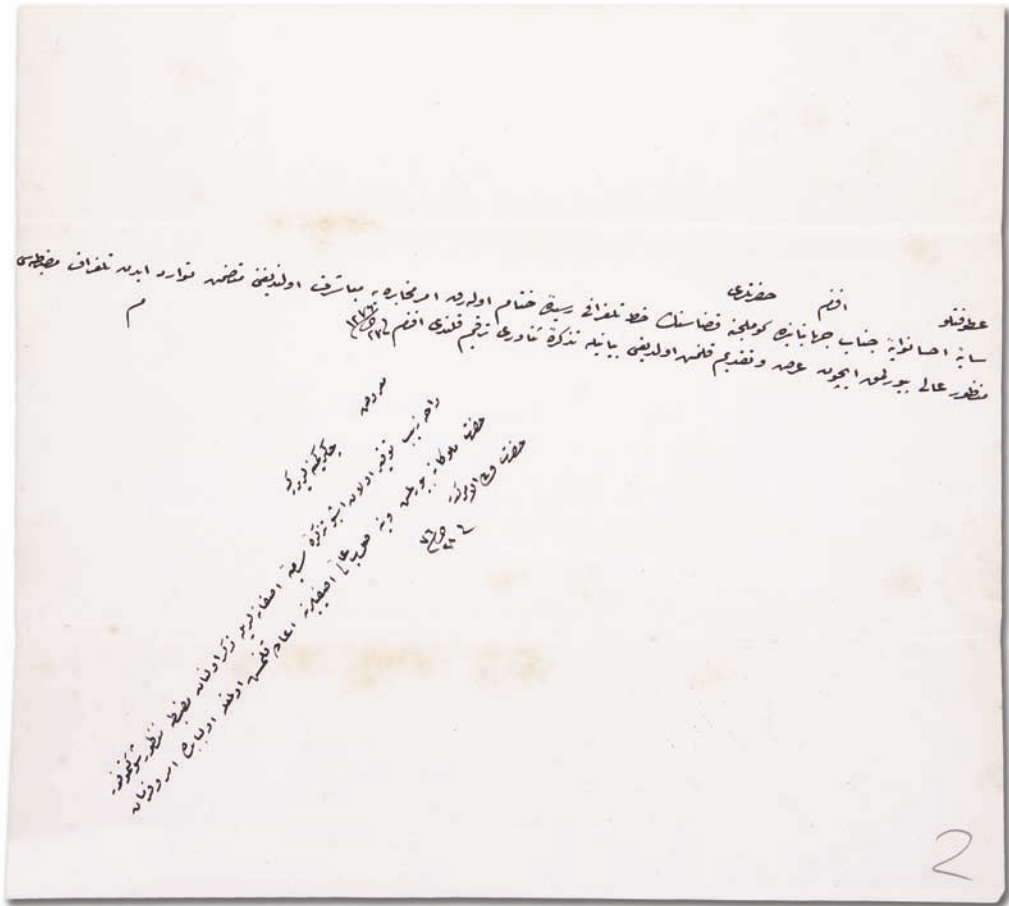 عطوفتلو افندم حضرتلری
سایهٔ احسانوایهٔ جناب جهانبانیده کوملجنه قضاسنك خط تلغرافی رسیدهٔ ختام اوله‌رق امر مخابره‌یه مباشرت اولندیغنی متضمن توارد ایدن تلغراف مضبطه‌سی
منظور عالی بیورلمق ایچون عرض و تقدیم قلنمش اولدیغی بیانیله تذکرهٔ ثناوری ترقیم قلندی افندم فی ٢٣ ص ١٢٧٦
م
معروض چاکر کمینه‌لریدر که
راحه زیب توقیر اولان اشبو تذکرهٔ سامیهٔ آصفانه‌لریله ذکر اولنان مضبطه منظور شوکتموفور
حضرت ملوکانه بیورلمش و ینه صوب عالی آصفیلرینه اعاده قلنمش اولمغله اولبابده امر و فرمان
حضرت ولی الامرکدر
فی ص ٧٦
2